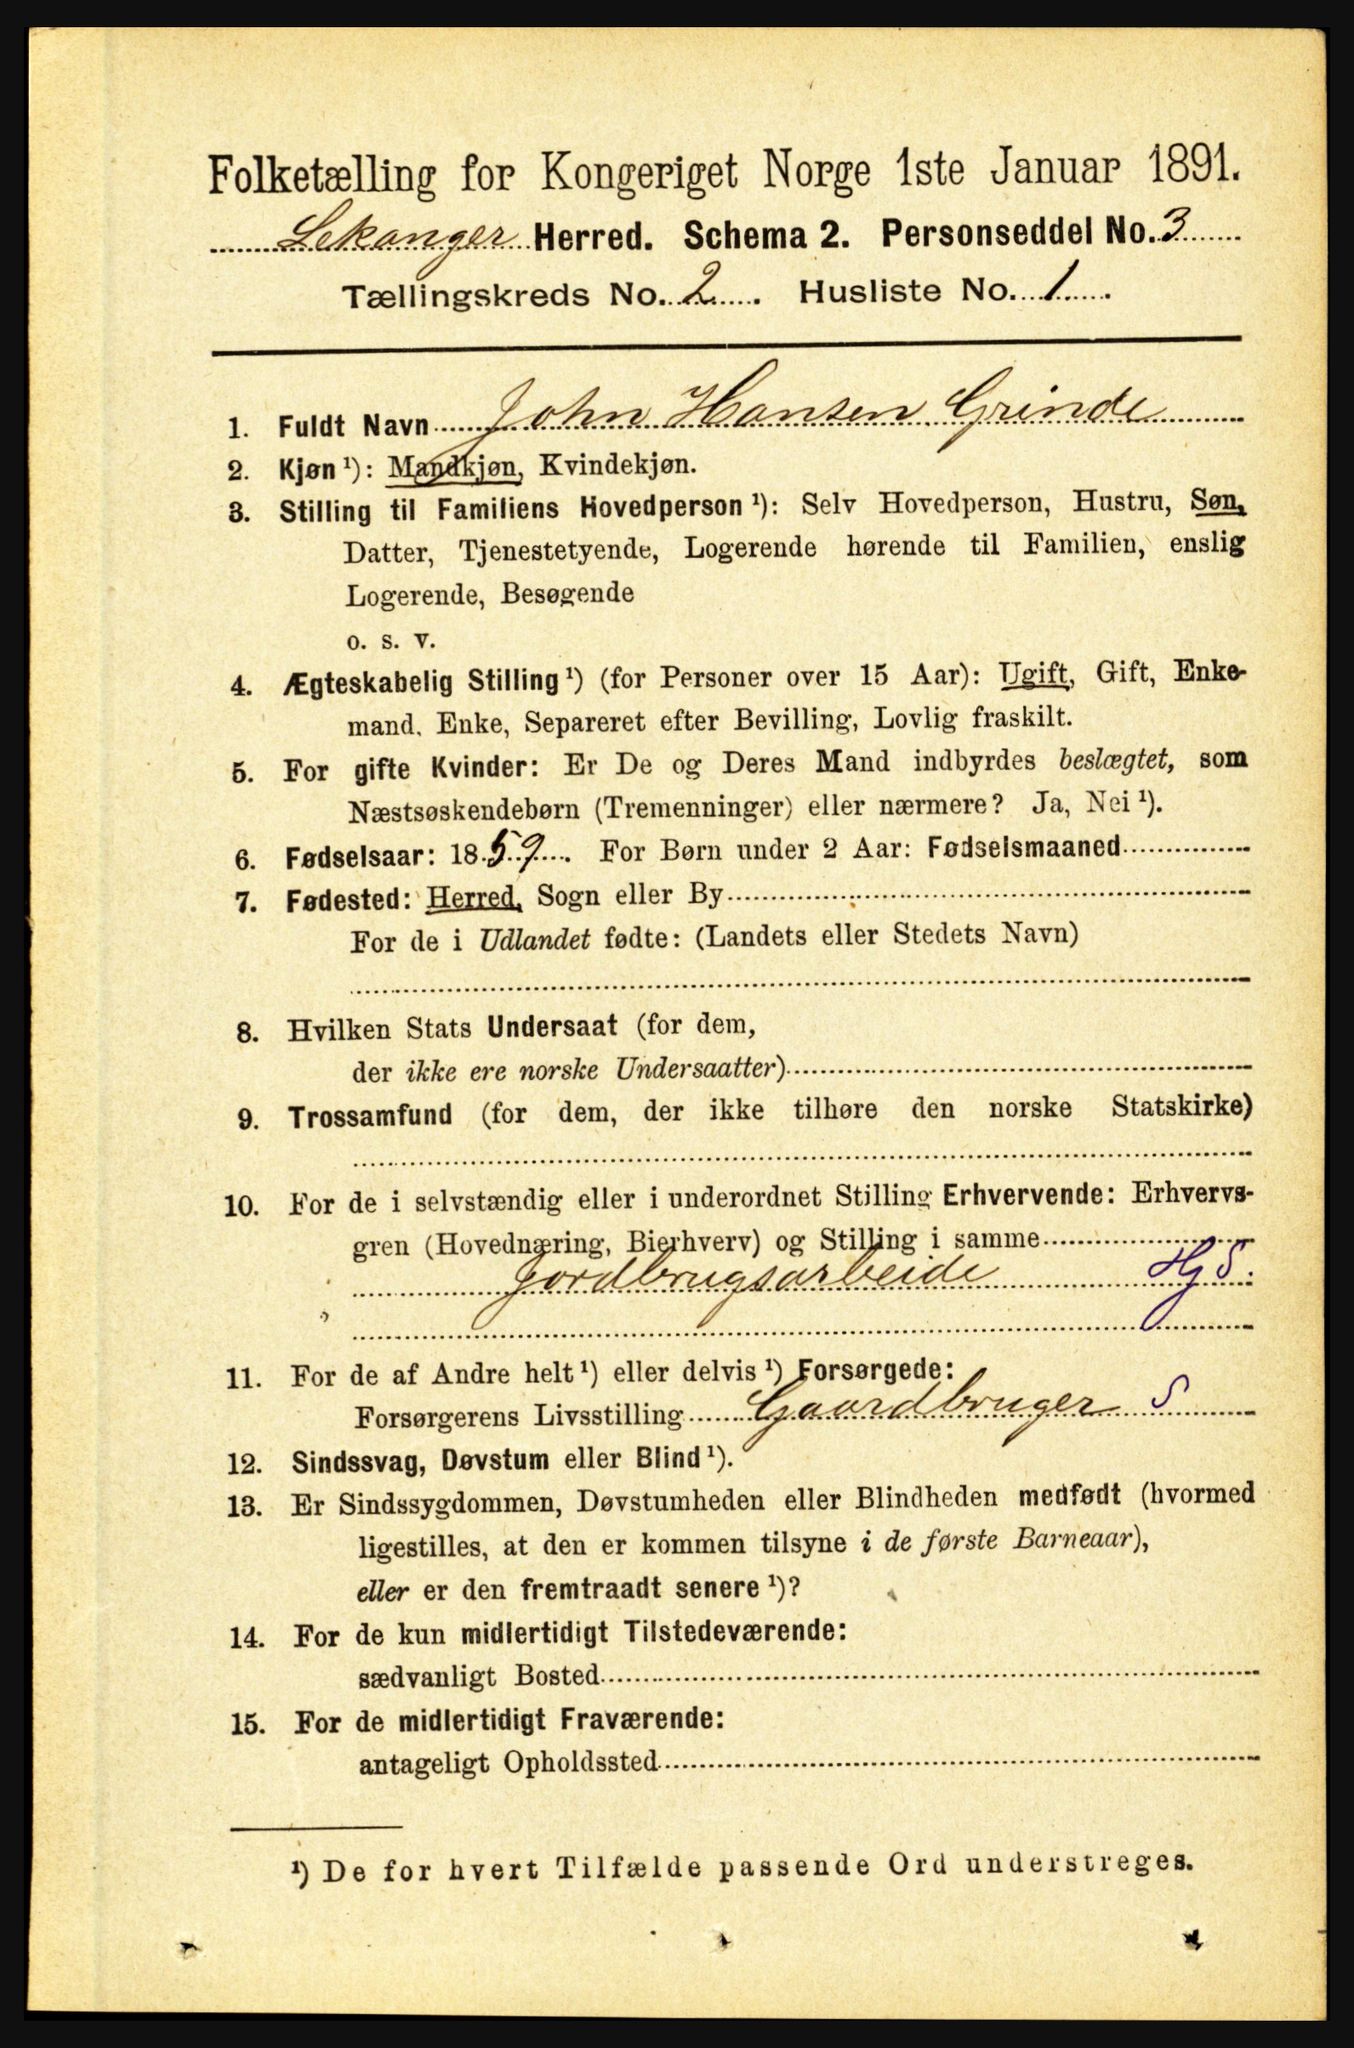 Folketælling for Kongeriget Norge 1ste Januar 1891.
Lekanger Herred. Schema 2. Personseddel No. 3
Tællingskreds No. 2. Husliste No. 1
1. Fuldt Navn John Hansen Grinde
2. Kjøn ¹): Mandkjøn, Kvindekjøn.
3. Stilling til Familiens Hovedperson ¹): Selv Hovedperson, Hustru, Søn,
Datter, Tjenestetyende, Logerende hørende til Familien, enslig
Logerende, Besøgende
o. s. v.
4. Ægteskabelig Stilling ¹) (for Personer over 15 Aar): Ugift, Gift, Enke-
mand, Enke, Separeret efter Bevilling, Lovlig fraskilt.
5. For gifte Kvinder: Er De og Deres Mand indbyrdes beslægtet, som
Næstsøskendebørn (Tremenninger) eller nærmere? Ja, Nei ¹).
6. Fødselsaar: 1859. For Børn under 2 Aar: Fødselsmaaned
7. Fødested: Herred, Sogn eller By
For de i Udlandet fødte: (Landets eller Stedets Navn)
8. Hvilken Stats Undersaat (for dem,
der ikke ere norske Undersaatter)
9. Trossamfund (for dem, der ikke tilhøre den norske Statskirke)
10. For de i selvstændig eller i underordnet Stilling Erhvervende: Erhvervs-
gren (Hovednæring, Bierhverv) og Stilling i samme
Jordbrugsarbeide Hj S.
11. For de af Andre helt ¹) eller delvis ¹) Forsørgede:
Forsørgerens Livsstilling Gaardbruger S
12. Sindssvag, Døvstum eller Blind ¹).
13. Er Sindssygdommen, Døvstumheden eller Blindheden medfødt (hvormed
ligestilles, at den er kommen tilsyne i de første Barneaar),
eller er den fremtraadt senere ¹)?
14. For de kun midlertidigt Tilstedeværende:
sædvanligt Bosted
15. For de midlertidigt Fraværende:
antageligt Opholdssted
¹) De for hvert Tilfælde passende Ord understreges.